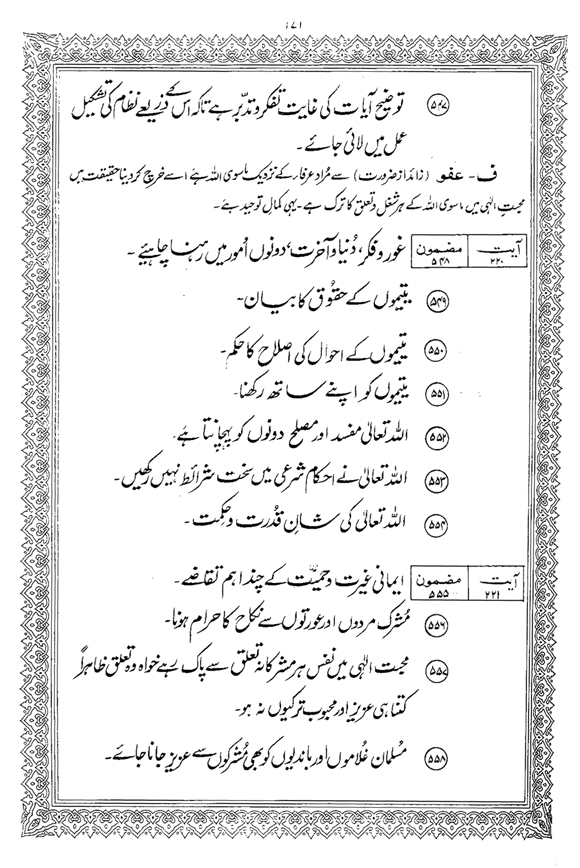 ۱۷۱
۵۴۷ توضیح آیات کی غایت تفکر و تدبّر ہے تاکہ اس کے ذریعے نظام کی تشکیل
عمل میں لائی جائے۔
ف۔ عفو (زائد از ضرورت) سے مُراد عرفاء کے نزدیک ماسوی اللہ ہے اسے خرچ کر دینا حقیقت میں
محبتِ الٰہی میں ماسوی اللہ کے ہر شغل و تعلق کا ترک ہے۔ یہی کمالِ توحید ہے۔
آیت ۲۲۰ مضمون ۵۴۸ غور و فکر، دُنیا و آخرت، دونوں اُمور میں رہنا چاہیئے۔
۵۴۹ یتیموں کے حقُوق کا بیان۔
۵۵۰ یتیموں کے احوال کی اصلاح کا حکم۔
۵۵۱ یتیموں کو اپنے ساتھ رکھنا۔
۵۵۲ اللہ تعالیٰ مفسد اور مصلح دونوں کو پہچانتا ہے۔
۵۵۳ اللہ تعالیٰ نے احکام شرعی میں سخت شرائط نہیں رکھیں۔
۵۵۴ اللہ تعالیٰ کی شانِ قُدرت و حکمت۔
آیت ۲۲۱ مضمون ۵۵۵ ایمانی غیرت و حمیّت کے چند اہم تقاضے۔
۵۵۶ مُشرک مردوں اور عورتوں سے نکاح کا حرام ہونا۔
۵۵۷ محبت الٰہی میں نفس ہر مشرکانہ تعلق سے پاک رہے خواہ وہ تعلق ظاہراً
کتنا ہی عزیز اور محبوب تر کیوں نہ ہو۔
۵۵۸ مُسلمان غُلاموں اور باندیوں کو بھی مُشرکوں سے عزیز جانا جائے۔